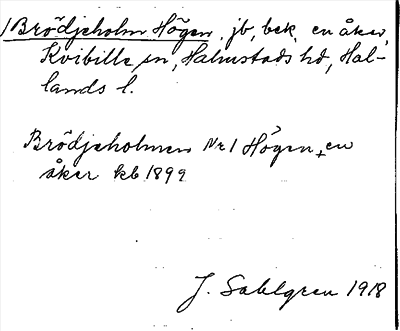 1 Brödjeholm Högen, jb, bek. en åker,
Kvibille sn, Halmstads hd, Hal-
lands l.
Brödjeholmen Nr 1 Högen, en
åker kb 1899
J. Sahlgren 1918